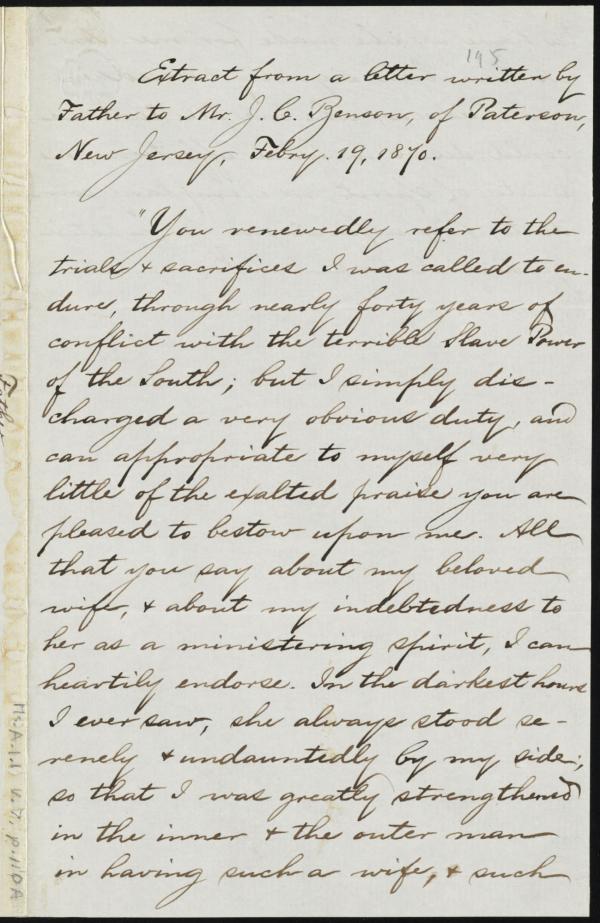 195
Extract from a letter written by
Father to Mr. J. C. Benson, of Paterson,
New Jersey, Febry. 19, 1870.
"You renewedly refer to the
trials & sacrifices I was called to en-
dure, through nearly forty years of
conflict with the terrible Slave Power
of the South; but I simply dis-
charged a very obvious duty, and
can appropriate to myself very
little of the exalted praise you are
pleased to bestow upon me. All
that you say about my beloved
wife, & about my indebtedness to
her as a ministering spirit, I can
heartily endorse. In the darkest hours
I ever saw, she always stood se-
renely & undauntedly by my side;
so that I was greatly strengthened
in the inner & the outer man
in having such a wife, & such
Ms. A. 1. 1 v. 7, p. 110A